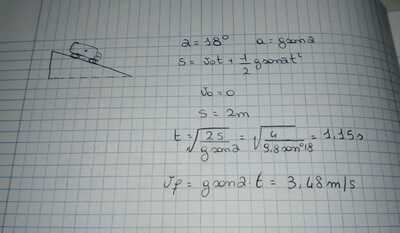 α = 18° a = g sen α
s = v₀t + 1/2 g sen α t²
v₀ = 0
s = 2m
t = √(2s / g sen α) = √(4 / 9.8 sen 18°) = 1,15s
vf = g sen α · t = 3,48 m/s